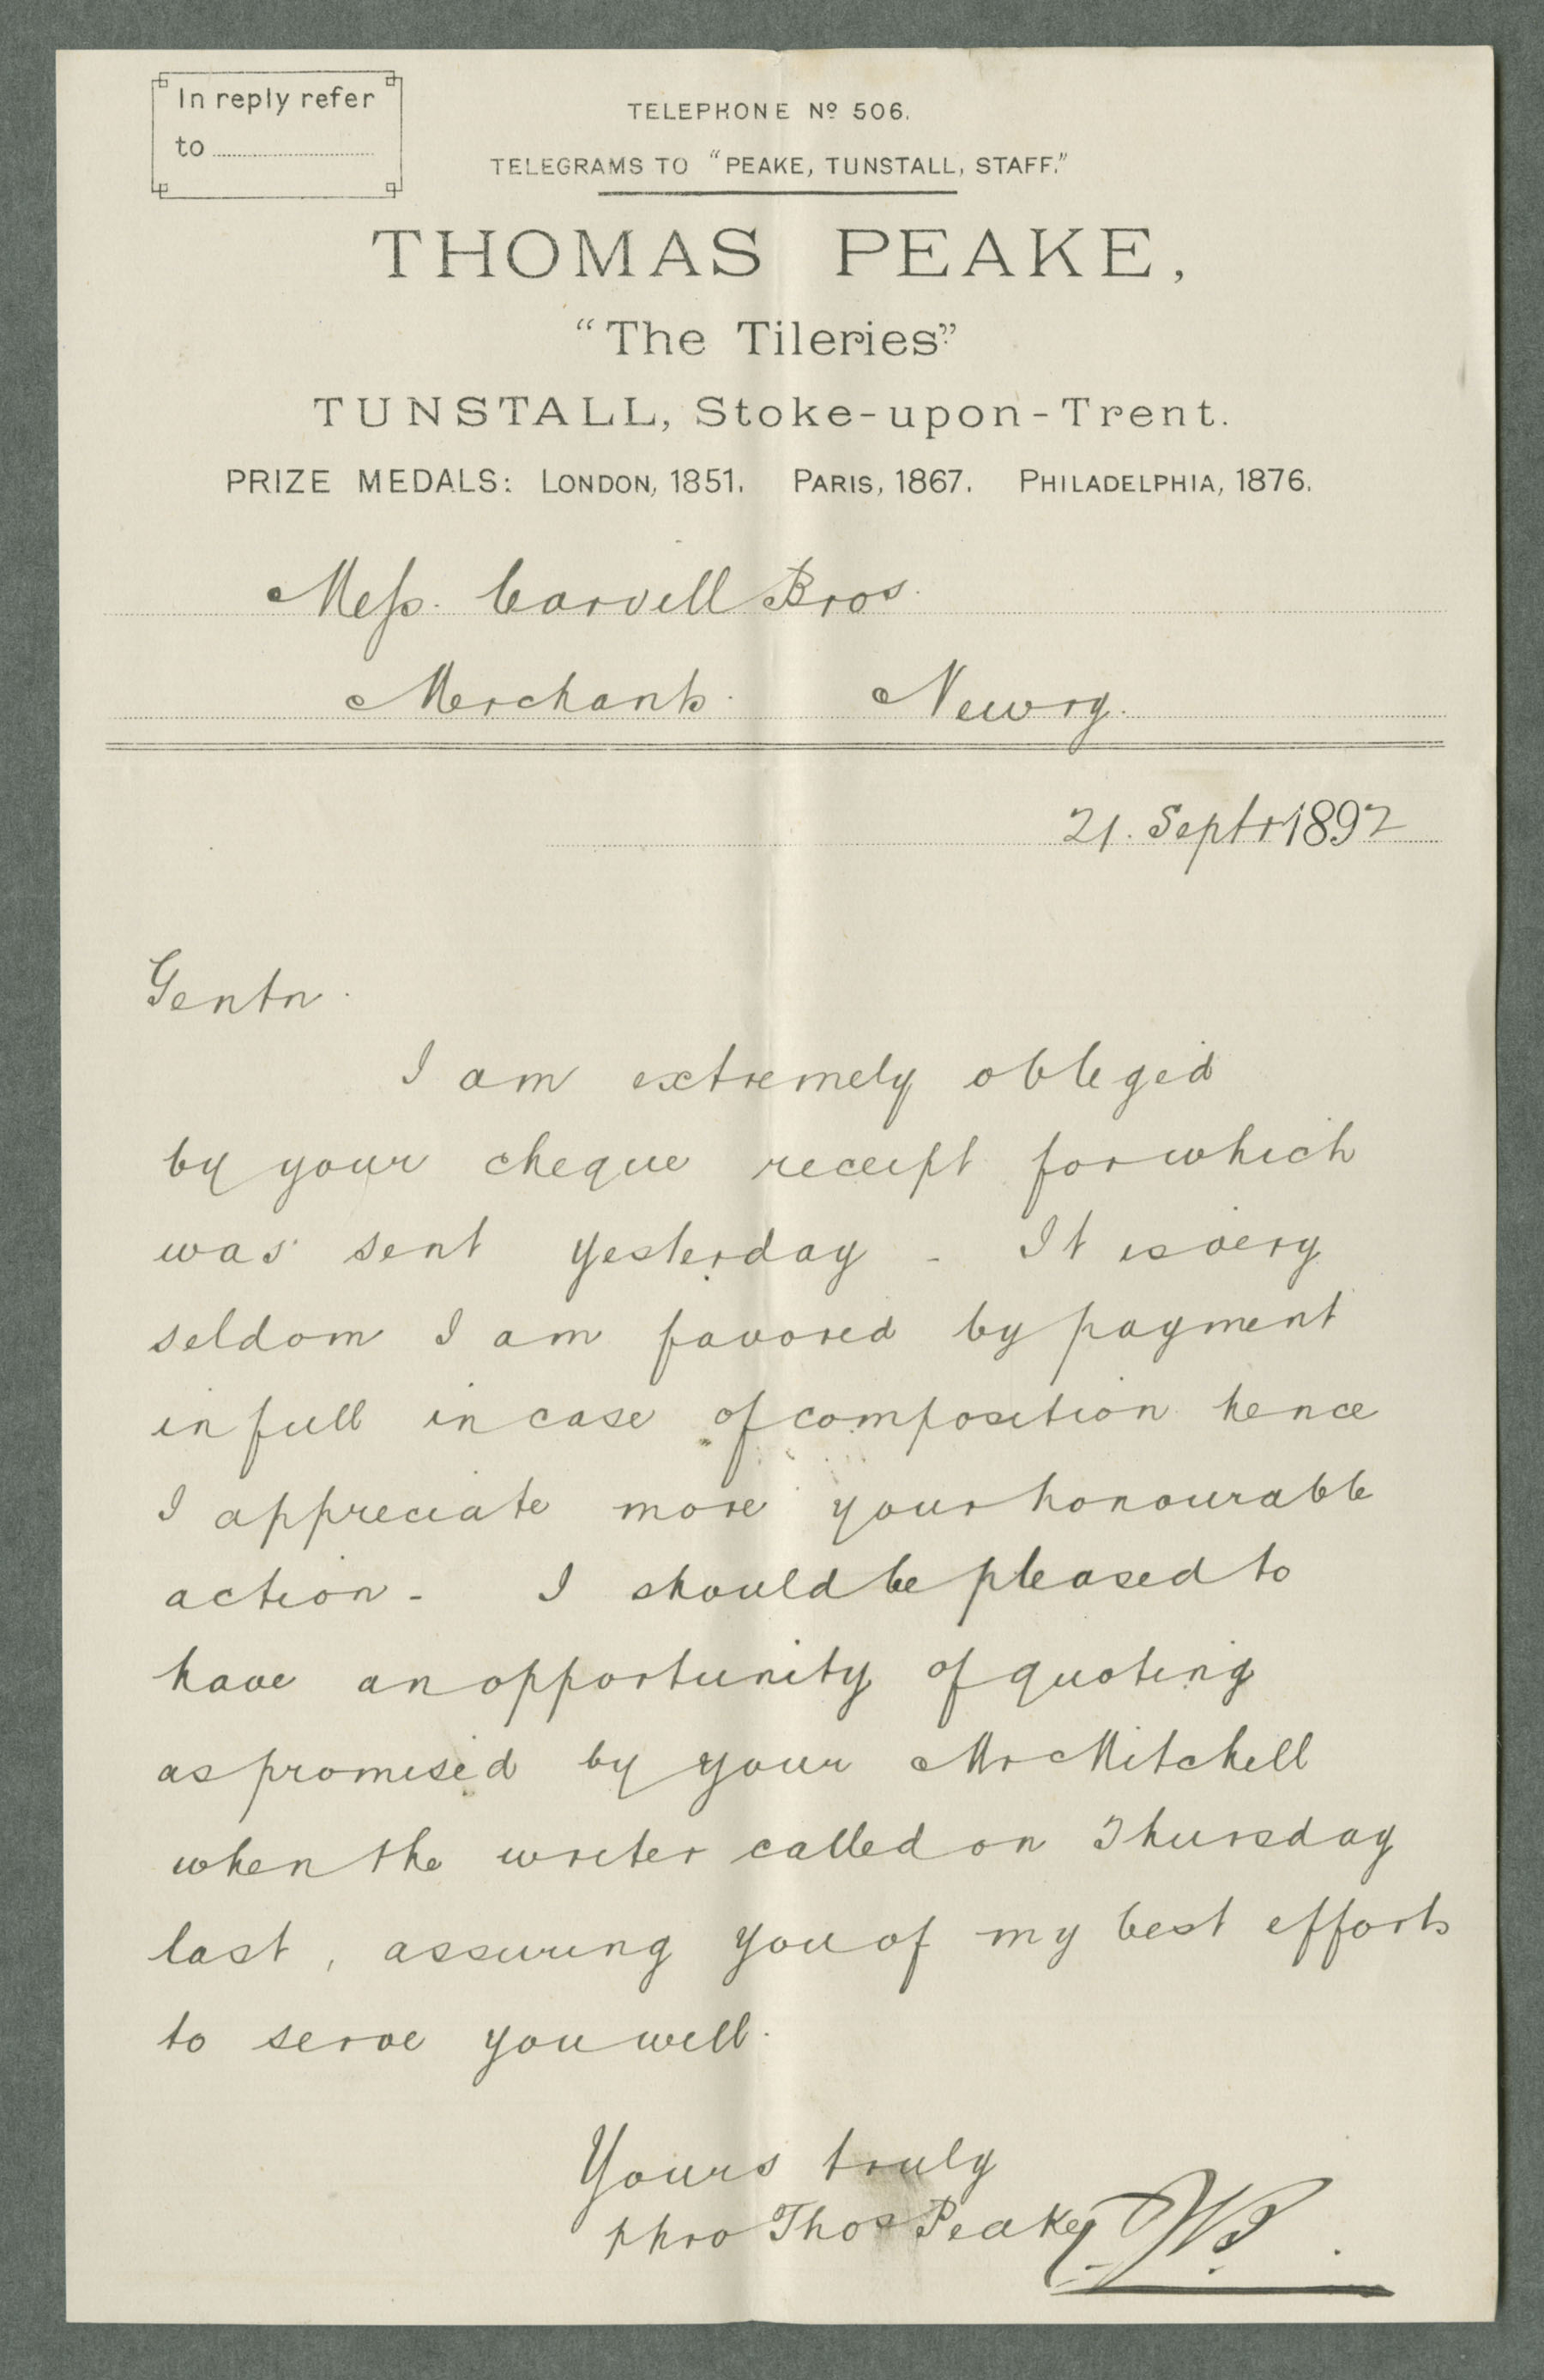 In reply refer
to
TELEPHONE Nº 506.
TELEGRAMS TO "PEAKE, TUNSTALL, STAFF."
THOMAS PEAKE,
"The Tileries"
TUNSTALL, Stoke-upon-Trent.
PRIZE MEDALS: LONDON, 1851. PARIS, 1867. PHILADELPHIA, 1876.
Mess. Carvill Bros.
Merchants. Newry.
21. Septr 1892
Gentn.
I am extremely obliged
by your cheque receipt for which
was sent yesterday - It is very
seldom I am favored by payment
in full in case of composition hence
I appreciate more your honourable
action - I should be pleased to
have an opportunity of quoting
as promised by your Mr Mitchell
when the writer called on Thursday
last, assuring you of my best efforts
to serve you well.
Yours truly
ppro Thos Peake